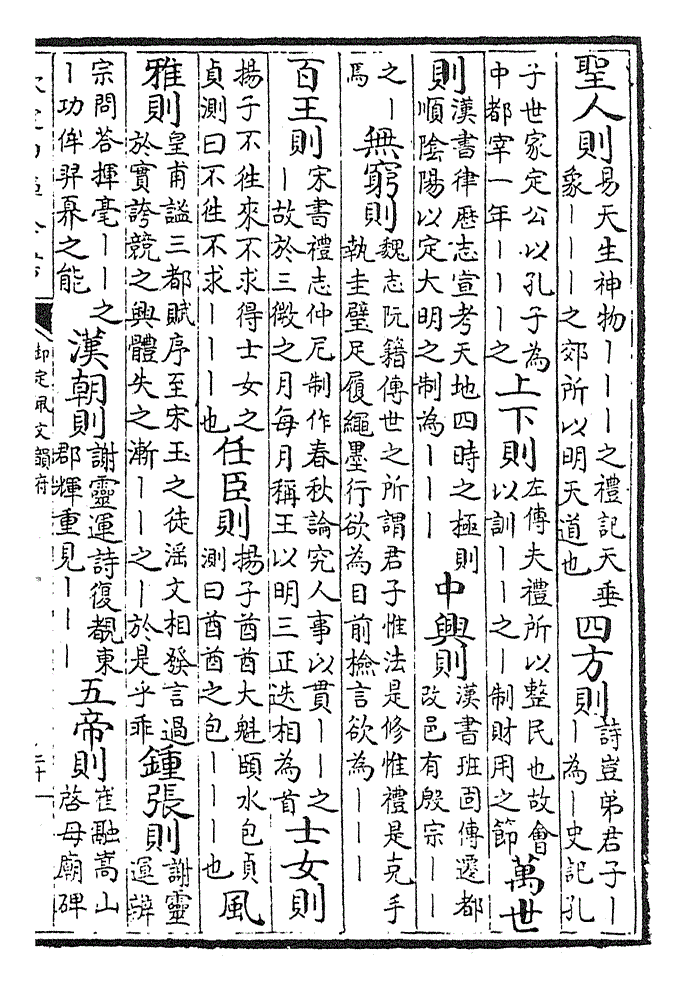 聖人則易天生神物丨丨丨之禮記天垂象丨丨丨之郊所以明天道也 四方則詩豈弟君子丨丨為丨史記孔
子世家定公以孔子為中都宰一年丨丨丨之 上下則左傳夫禮所以整民也故會以訓丨丨之丨制財用之節 萬世
則漢書律歷志宣考天地四時之極則順陰陽以定大明之制為丨丨丨 中興則漢書班固傳遷都改邑有殷宗丨丨
之丨焉 無窮則魏志阮籍傳世之所謂君子惟法是修惟禮是克手執圭璧足履繩墨行欲為目前檢言欲為丨丨丨
百王則宋書禮志仲尼制作春秋論究人事以貫丨丨之丨故於三微之月每月稱王以明三正迭相為首 士女則
揚子不徃來不求得士女之貞測曰不徃不求丨丨丨也 任臣則揚子酋酋大魁頤水包貞測曰酋酋之包丨丨丨也 風
雅則皇甫謐三都賦序至宋玉之徒滛文相發言過於實誇競之興體失之漸丨丨之丨於是乎乖 鍾張則謝靈運辨
宗問荅揮毫丨丨之丨功侔羿奡之能 漢朝則謝靈運詩復覩東都輝重見丨丨丨 五帝則崔融嵩山啓母廟碑
御定佩文韻府